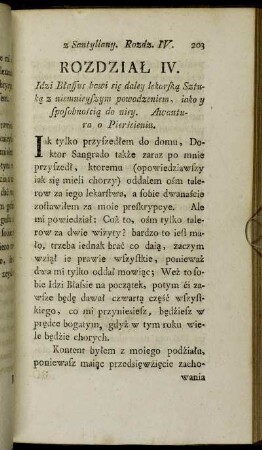 z Santyllany. Rozdz. IV. 203
ROZDZIAŁ IV.
Idzi Blassus bawi się daley lekarską Sztu-
ką z niemnieyszym powodzeniem, iako y
sposobnością do niey. Awantu-
ra o Pierścieniu.
Iak tylko przyszedłem do domu, Do-
ktor Sangrado także zaraz po mnie
przyszedł, ktoremu (opowiedziawszy
iak się mieli chorzy) oddałem ośm tale-
row za iego lekarstwa, a sobie dwanaście
zostawiłem za moie preskrypcye. Ale
mi powiedział: Coż to, ośm tylko tale-
row za dwie wizyty? bardzo to iest ma-
ło, trzeba iednak brać co daią, zaczym
wziął ie prawie wszystkie, ponieważ
dwa mi tylko oddał mowiąc; Weź to so-
bie Idzi Blasie na początek, potym ći za-
wsze będę dawał czwartą część wszyst-
kiego, co mi przyniesiesz, będziesz w
prędce bogatym, gdyż w tym roku wie-
le będzie chorych.
Kontent byłem z moiego podziału,
ponieważ maiąc przedsięwzięcie zacho-
wania